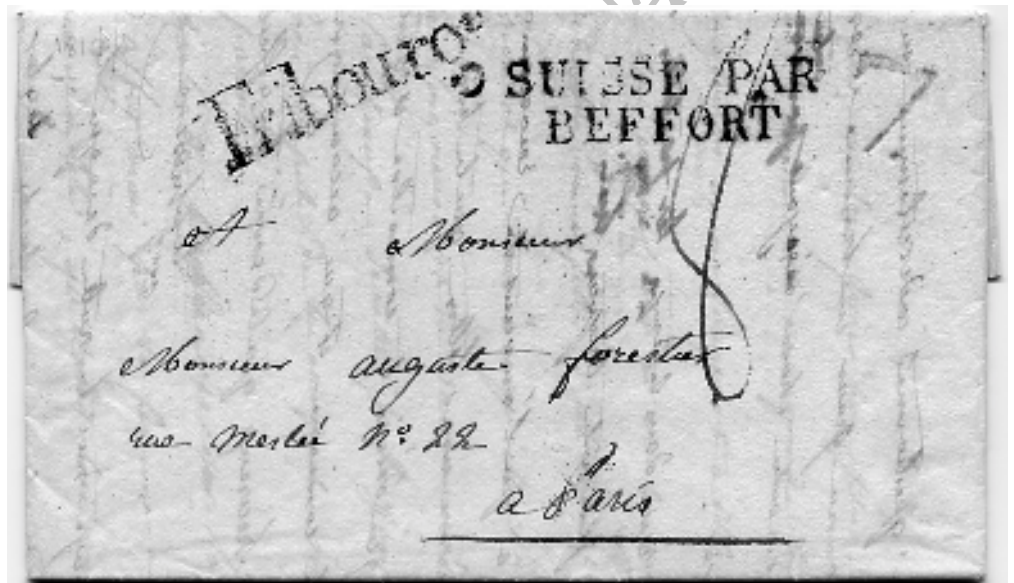 Fribourg
SUISSE PAR
BEFFORT
A Monsieur
Monsieur auguste forestier
rue Meslée N° 22
a Paris